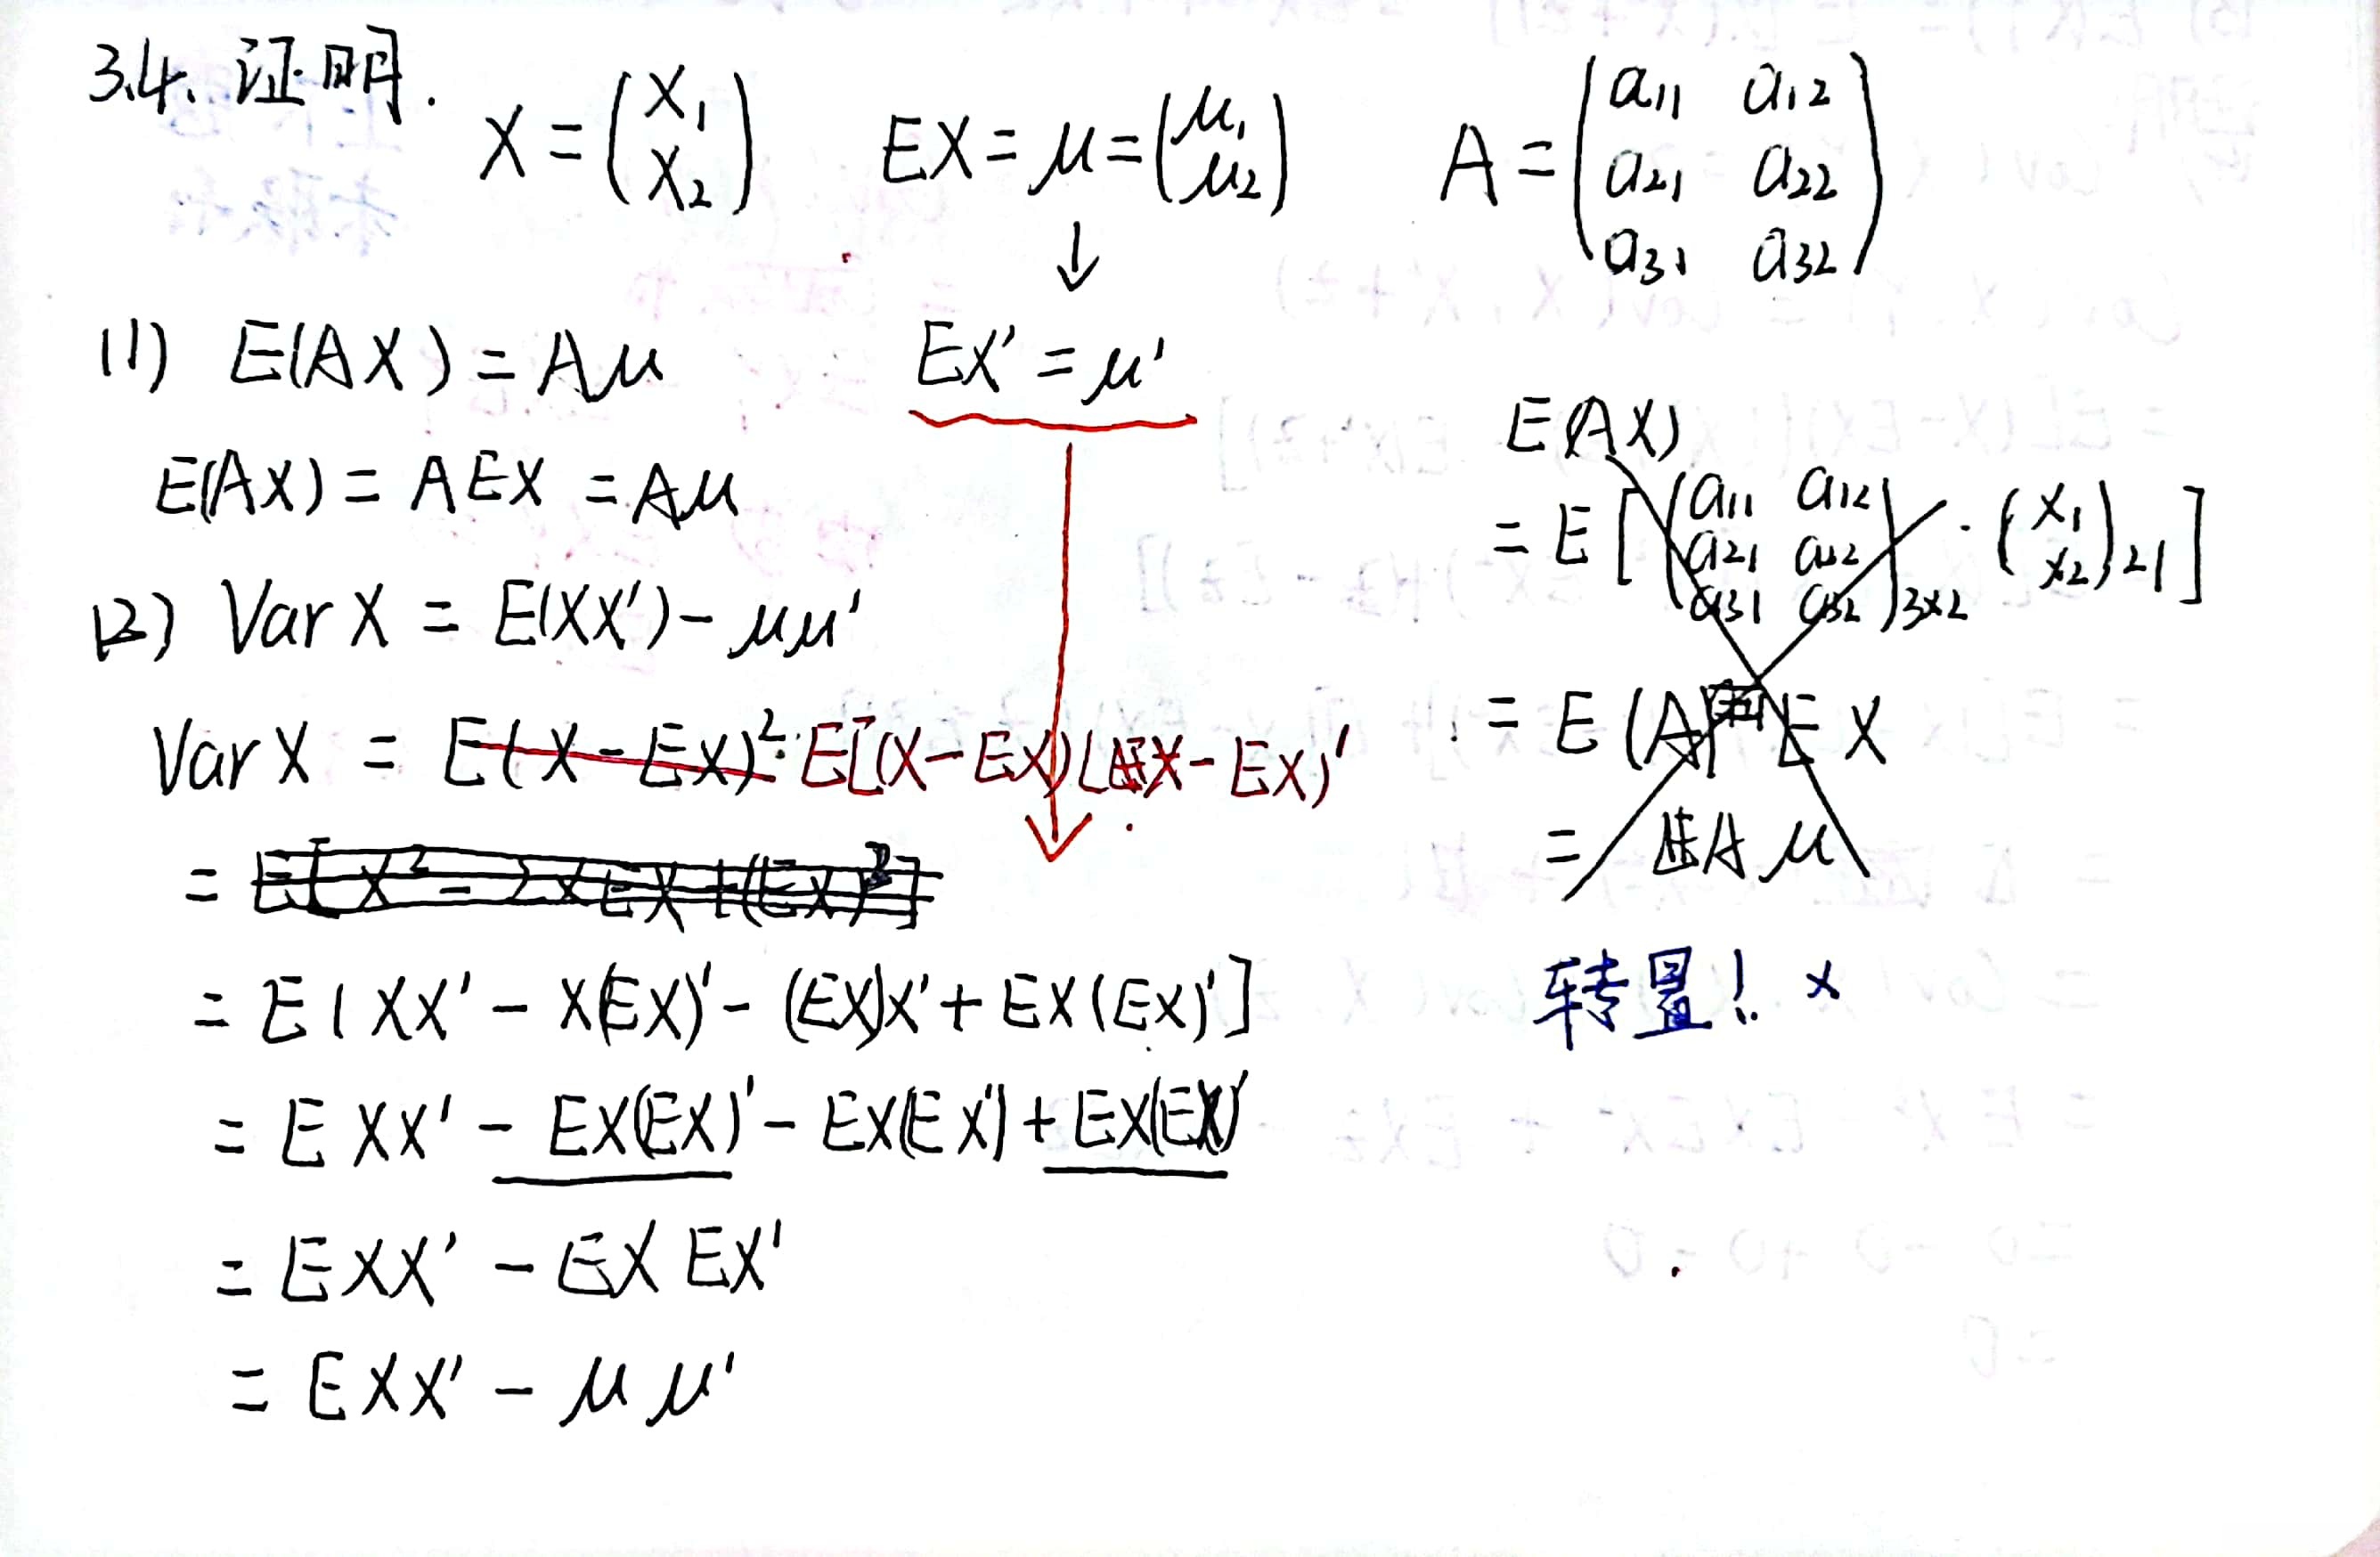 3.4. 证明. X = (X₁ X₂) EX = μ = (μ₁ μ₂) A = (a₁₁ a₁₂ a₂₁ a₂₂ a₃₁ a₃₂)
↓
(1) E(AX) = Aμ EX' = μ'
E(AX) = A EX = Aμ
(2) Var X = E(XX') - μμ'
Var X = E(X - EX)². E[(X-EX)(X-EX)'
= E[X² - 2XEX + (EX)²]
= E(XX' - X(EX)' - (EX)X' + EX(EX)']
= EXX' - EX(EX)' - EX(EX') + EX(EX)'
= EXX' - EX EX'
= EXX' - μμ'
E(AX)
= E[(a₁₁ a₁₂ a₂₁ a₂₂ a₃₁ a₃₂)3×2 · (X₁ X₂)21]
= E(A) EX
= Aμ
转置! ×